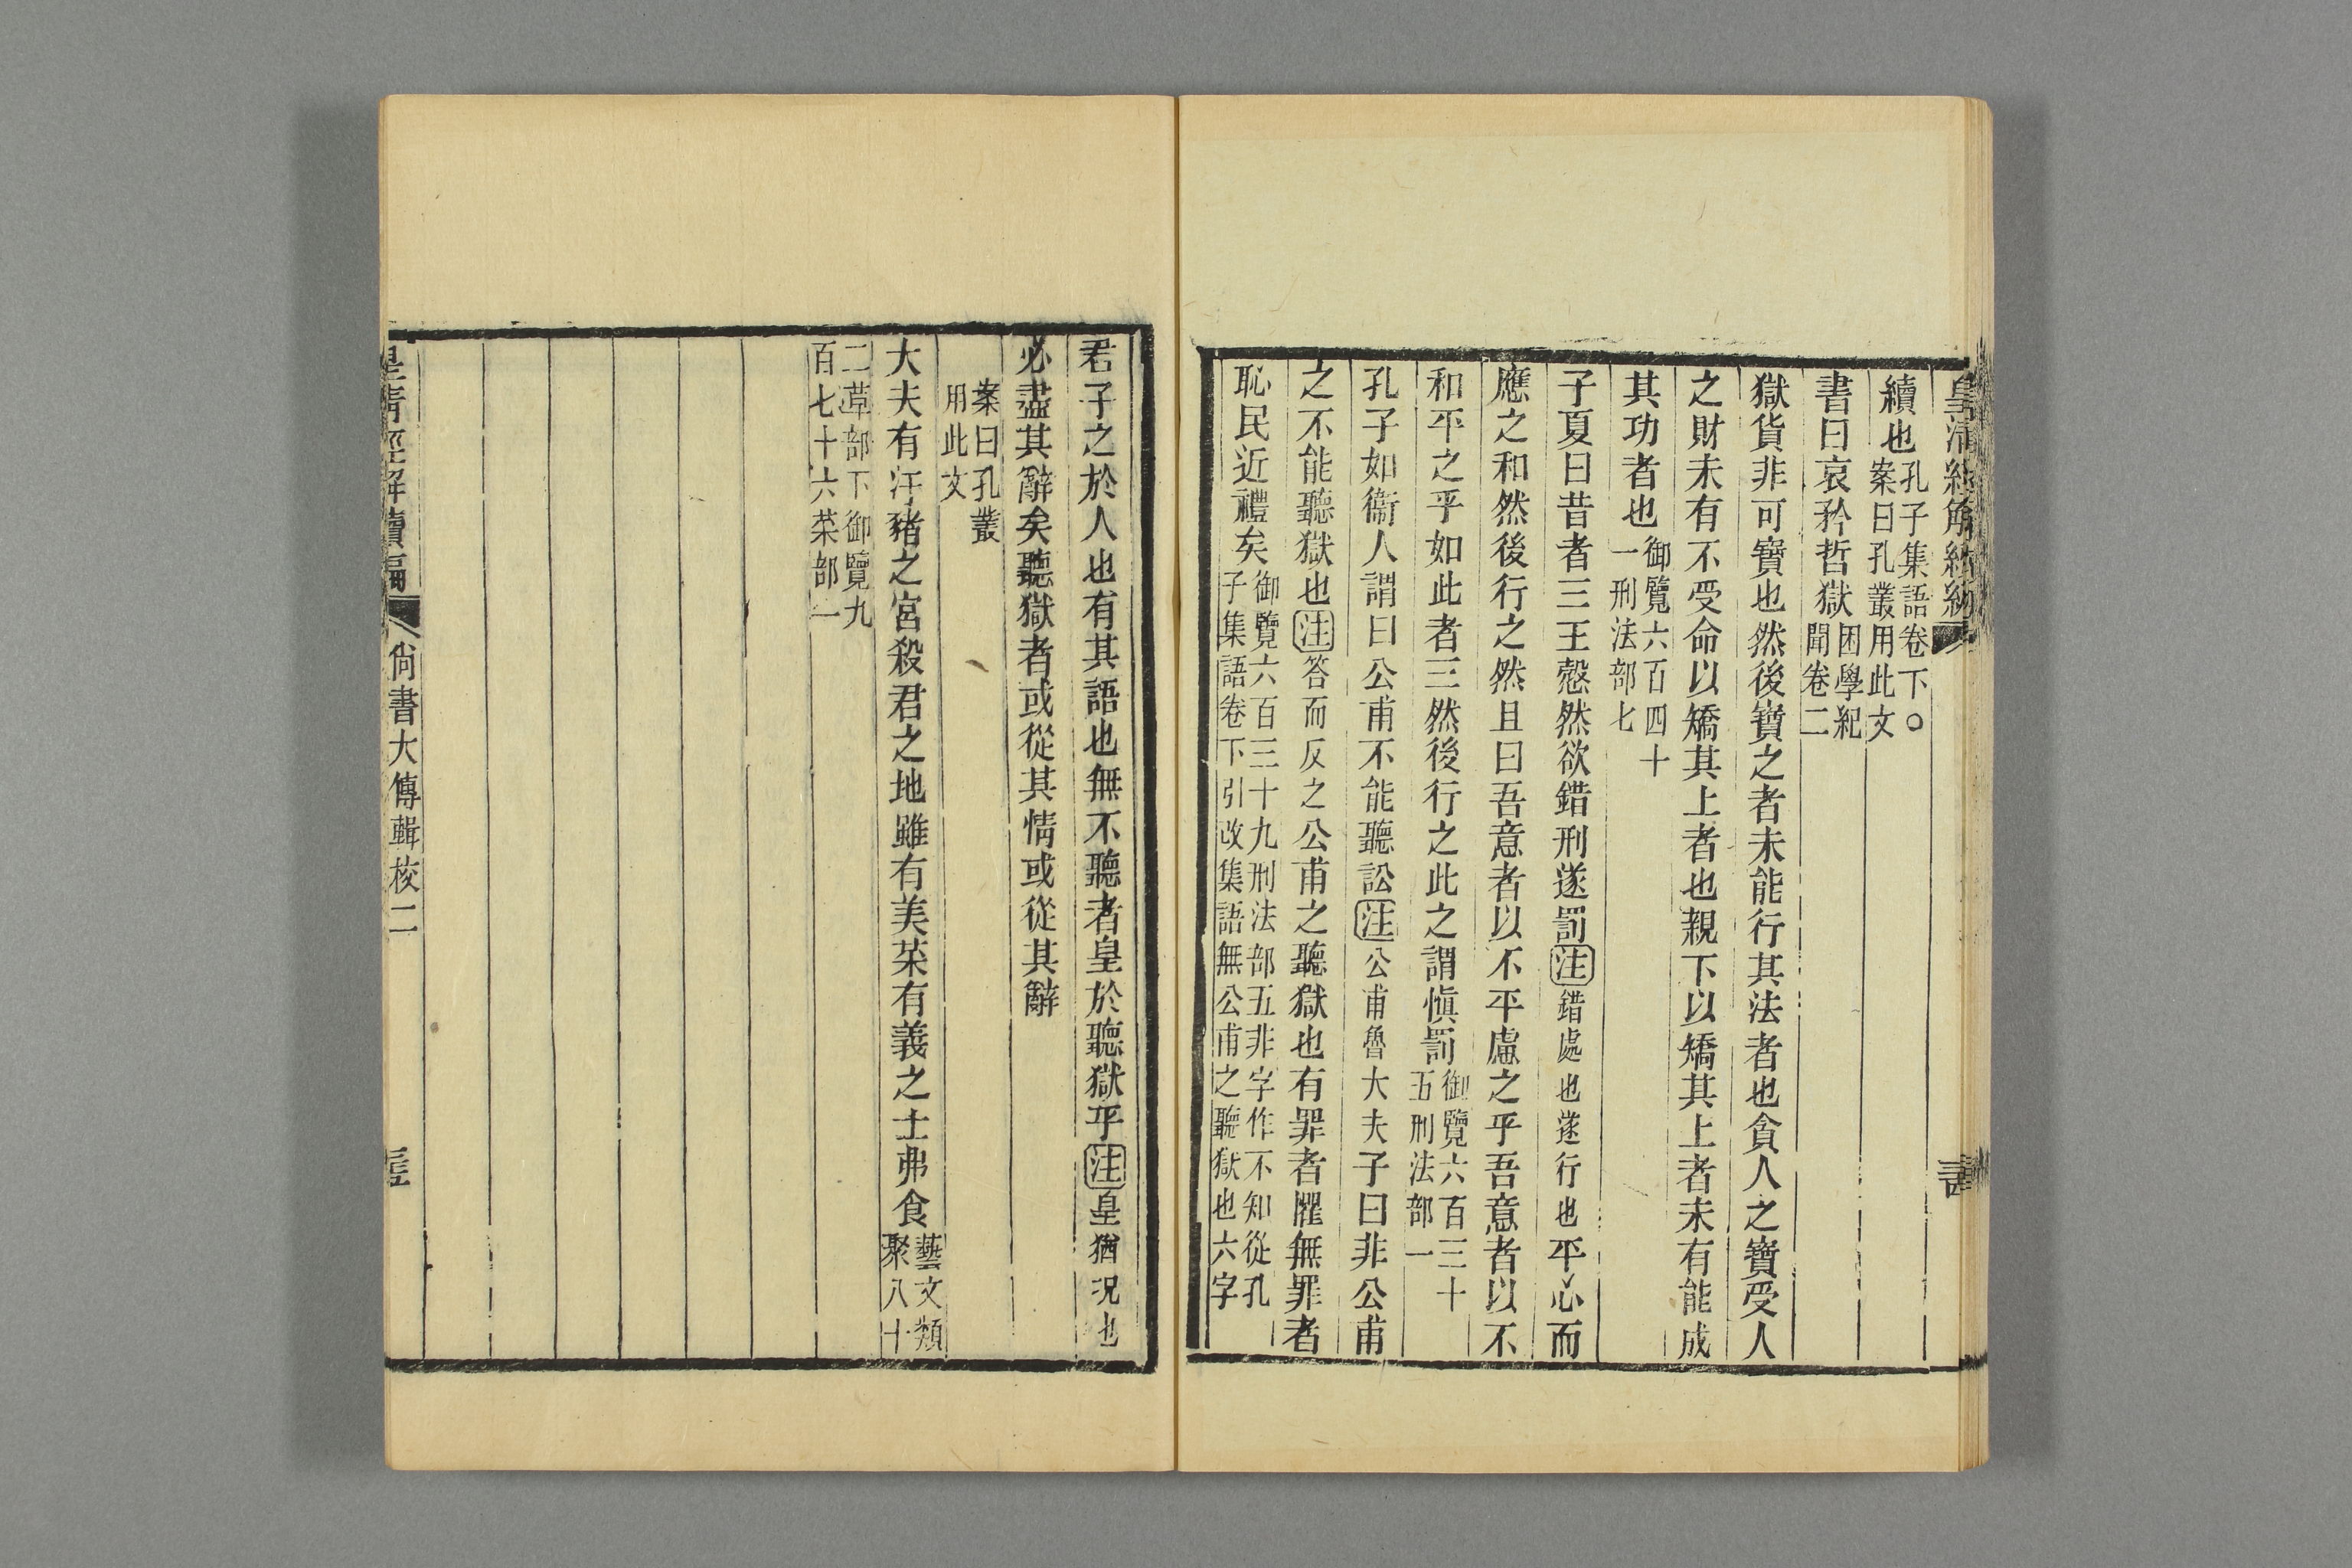 續也孔子集語卷下〇案曰孔叢用此文
書曰哀矜哲獄困學紀聞卷二
獄貨非可寶也然後寶之者未能行其法者也貪人之寶受人
之財未有不受命以矯其上者也親下以矯其上者未有能成
其功者也御覽六百四十一刑法部七
子夏曰昔者三王愨然欲錯刑遂罰注錯處也遂行也平心而
應之和然後行之然且曰吾意者以不平慮之乎吾意者以不
和平之乎如此者三然後行之此之謂愼罰御覽六百三十五刑法部一
孔子如衞人謂曰公甫不能聽訟注公甫魯大夫子曰非公甫
之不能聽獄也注答而反之公甫之聽獄也有罪者懼無罪者
恥民近禮矣御覽六百三十九刑法部五非字作不知從孔子集語卷下引改集語無公甫之聽獄也六字
君子之於人也有其語也無不聽者皇於聽獄乎注皇猶况也
必盡其辭矣聽獄者或從其情或從其辭
案曰孔叢用此文
大夫有汙豬之宮殺君之地雖有美菜有義之士弗食藝文類聚八十
二草部下御覽九百七十六菜部一
皇淸經解續編
尙書大傳輯校二